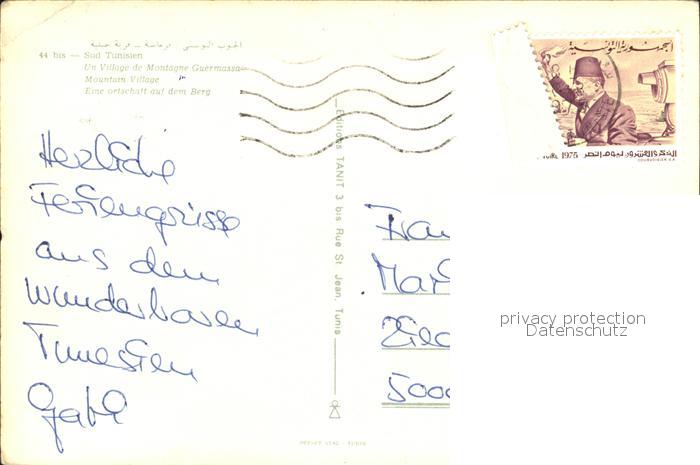 الجنوب التونسي - قرماسة - قرية جبلية
44 bis — Sud Tunisien
Un Village de Montagne Guermassa
Mountain Village
Eine ortschaft auf dem Berg
Herzliche
Feriengrüsse
aus dem
wunderbaren
Tunesien
Gabi
Editions TANIT 3 bis Rue St Jean, Tunis
Frau
Mar
5000
الجمهورية التونسية
1975 الذكرى العشرون ليوم النصر
privacy protection
Datenschutz